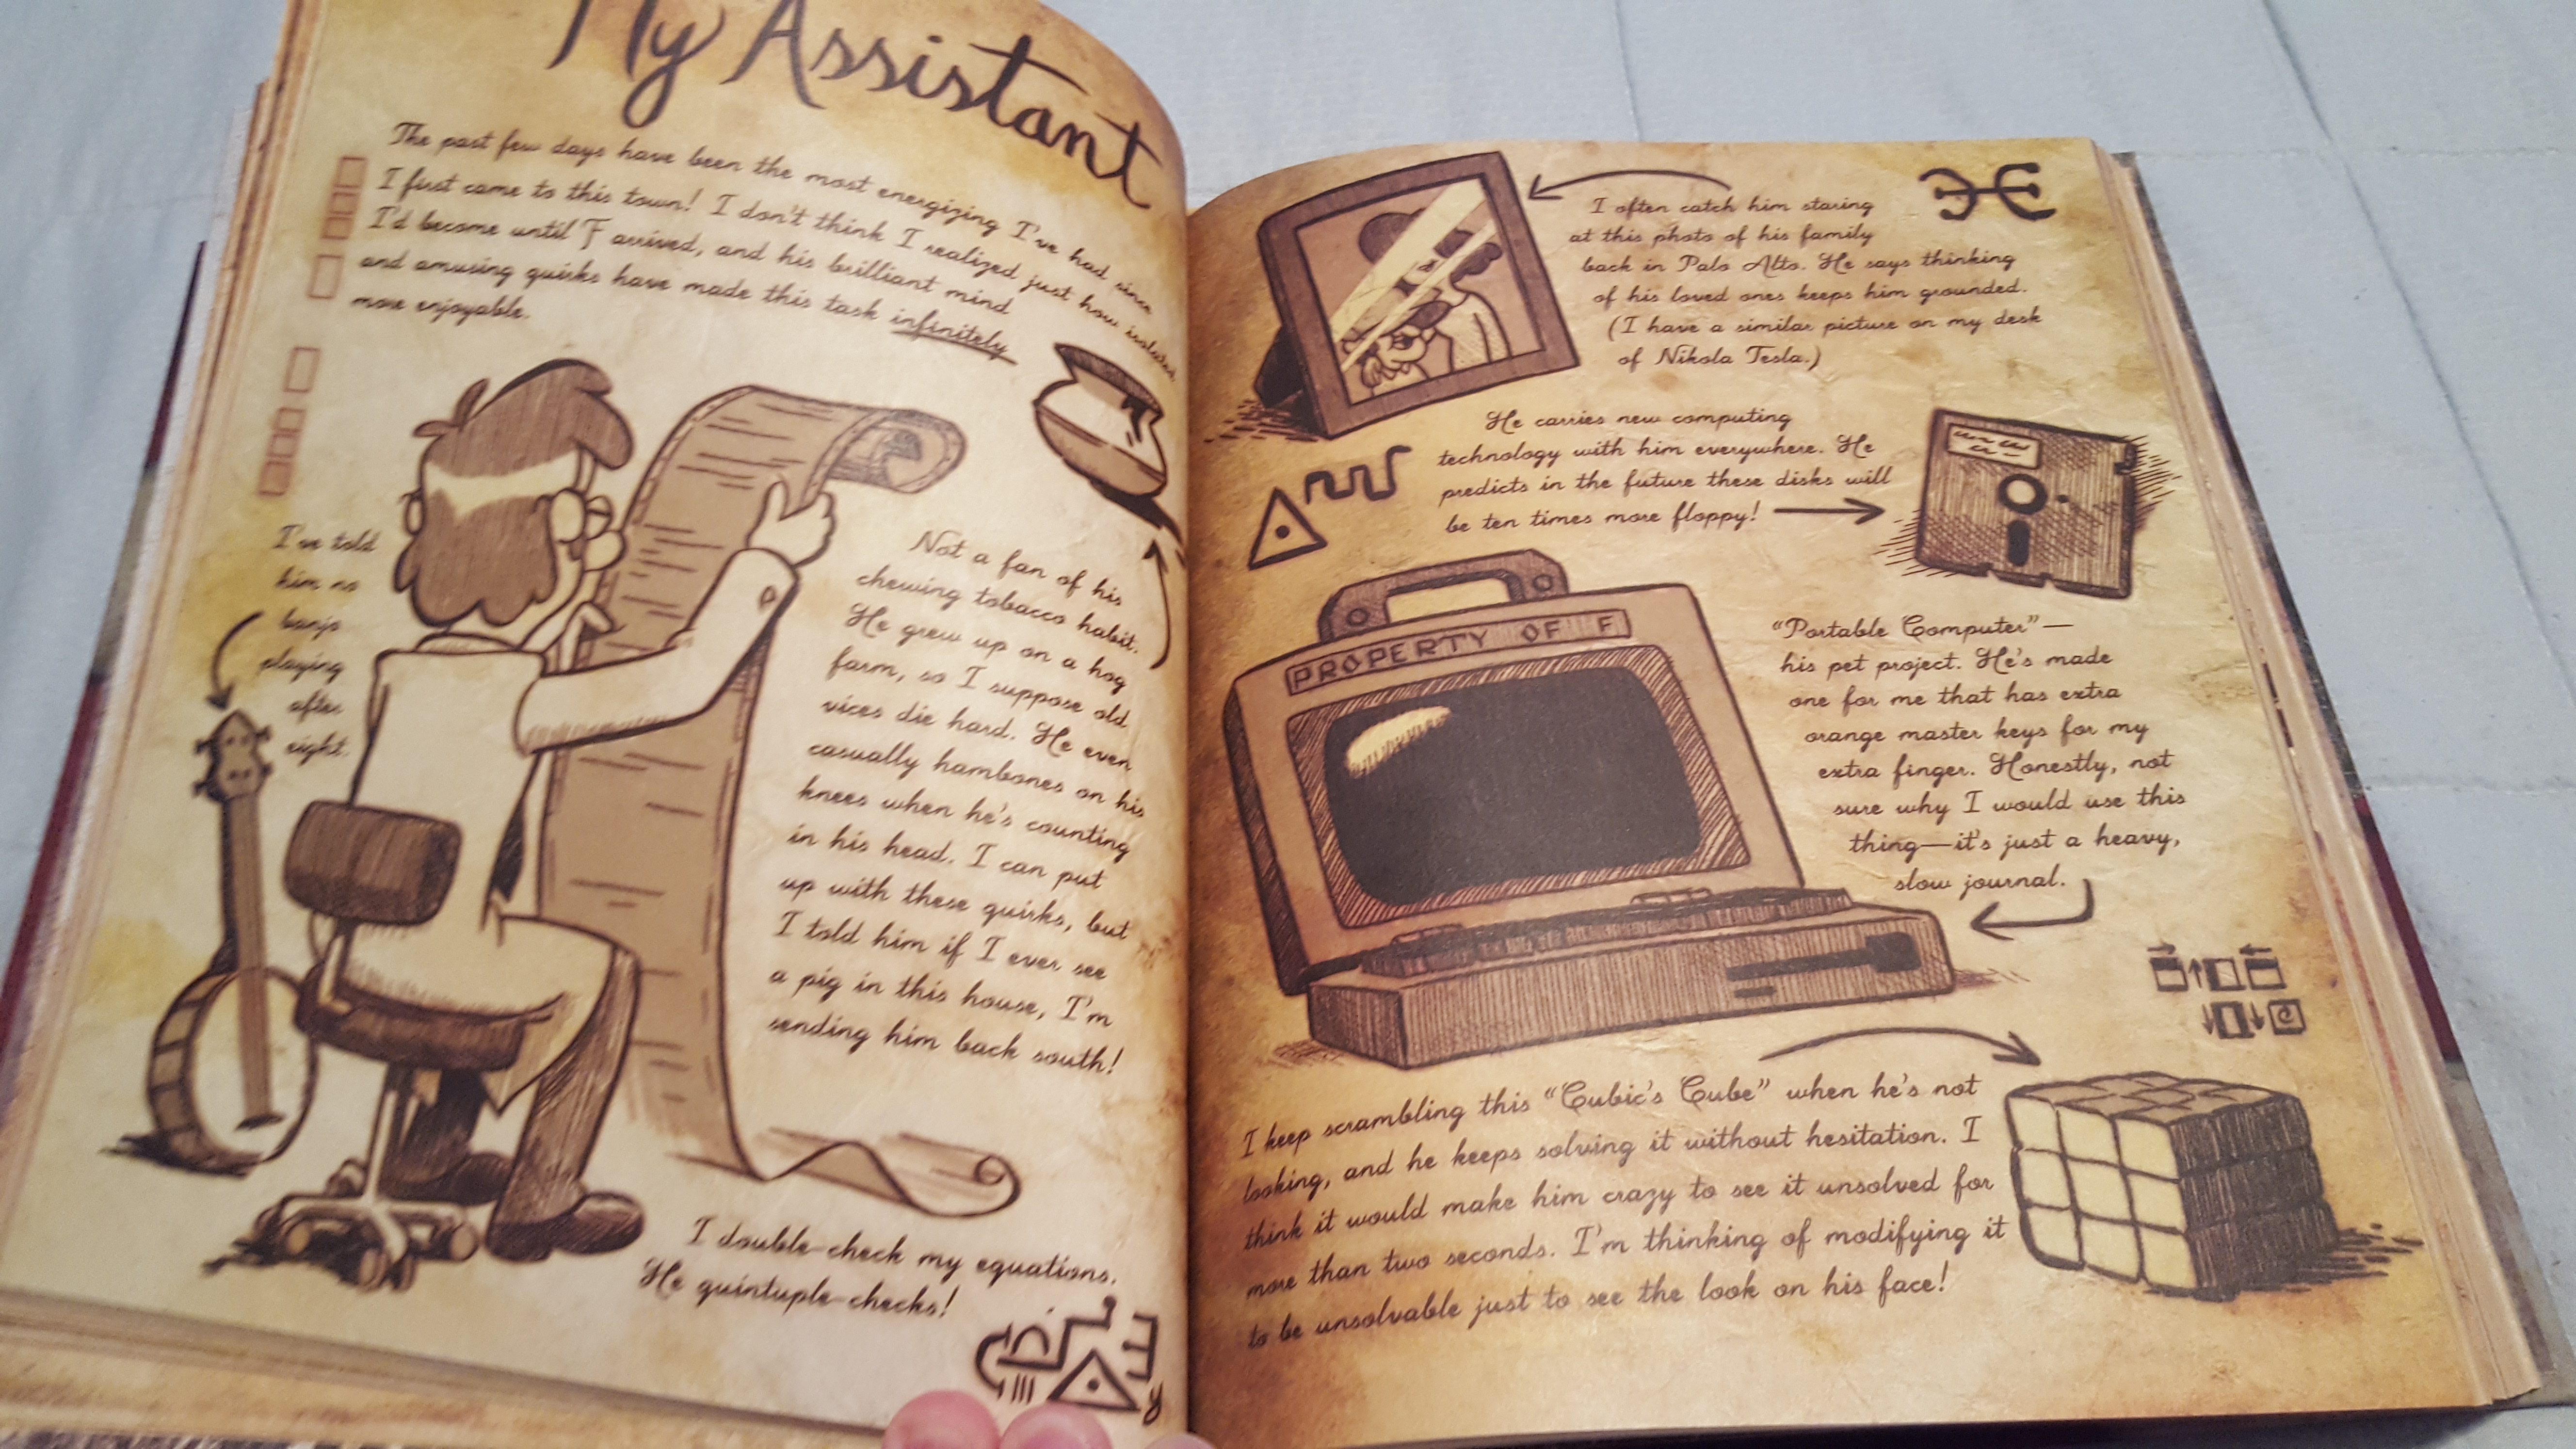 My Assistant
The past few days have been the most energizing I've had since
I first came to this town! I don't think I realized just how isolated
I'd become until F arrived, and his brilliant mind
and amusing quirks have made this task infinitely
more enjoyable.
I've told
him no
banjo
playing
after
eight.
Not a fan of his
chewing tobacco habit.
He grew up on a hog
farm, so I suppose old
vices die hard. He even
casually hambones on his
knees when he's counting
in his head. I can put
up with these quirks, but
I told him if I ever see
a pig in this house, I'm
sending him back south!
I double-check my equations.
He quintuple-checks!
I often catch him staring
at this photo of his family
back in Palo Alto. He says thinking
of his loved ones keeps him grounded.
(I have a similar picture on my desk
of Nikola Tesla.)
He carries new computing
technology with him everywhere. He
predicts in the future these disks will
be ten times more floppy!
PROPERTY OF F
"Portable Computer"—
his pet project. He's made
one for me that has extra
orange master keys for my
extra finger. Honestly, not
sure why I would use this
thing—it's just a heavy,
slow journal.
I keep scrambling this "Cubic's Cube" when he's not
looking, and he keeps solving it without hesitation. I
think it would make him crazy to see it unsolved for
more than two seconds. I'm thinking of modifying it
to be unsolvable just to see the look on his face!